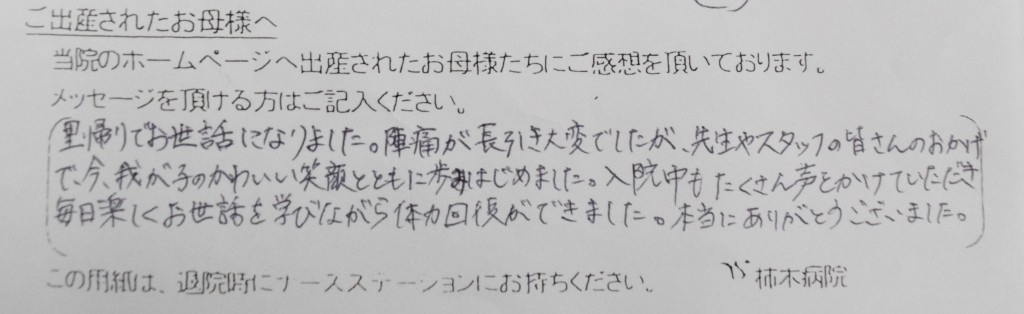 ご出産されたお母様へ
当院のホームページへ出産されたお母様たちにご感想を頂いております。
メッセージを頂ける方はご記入ください。
里帰りでお世話になりました。陣痛が長引き大変でしたが、先生やスタッフの皆さんのおかげ
で、今、我が子のかわいい笑顔とともに歩みはじめました。入院中もたくさん声をかけていただき
毎日楽しくお世話を学びながら体力回復ができました。本当にありがとうございました。
この用紙は、退院時にナースステーションにお持ちください。
柿木病院